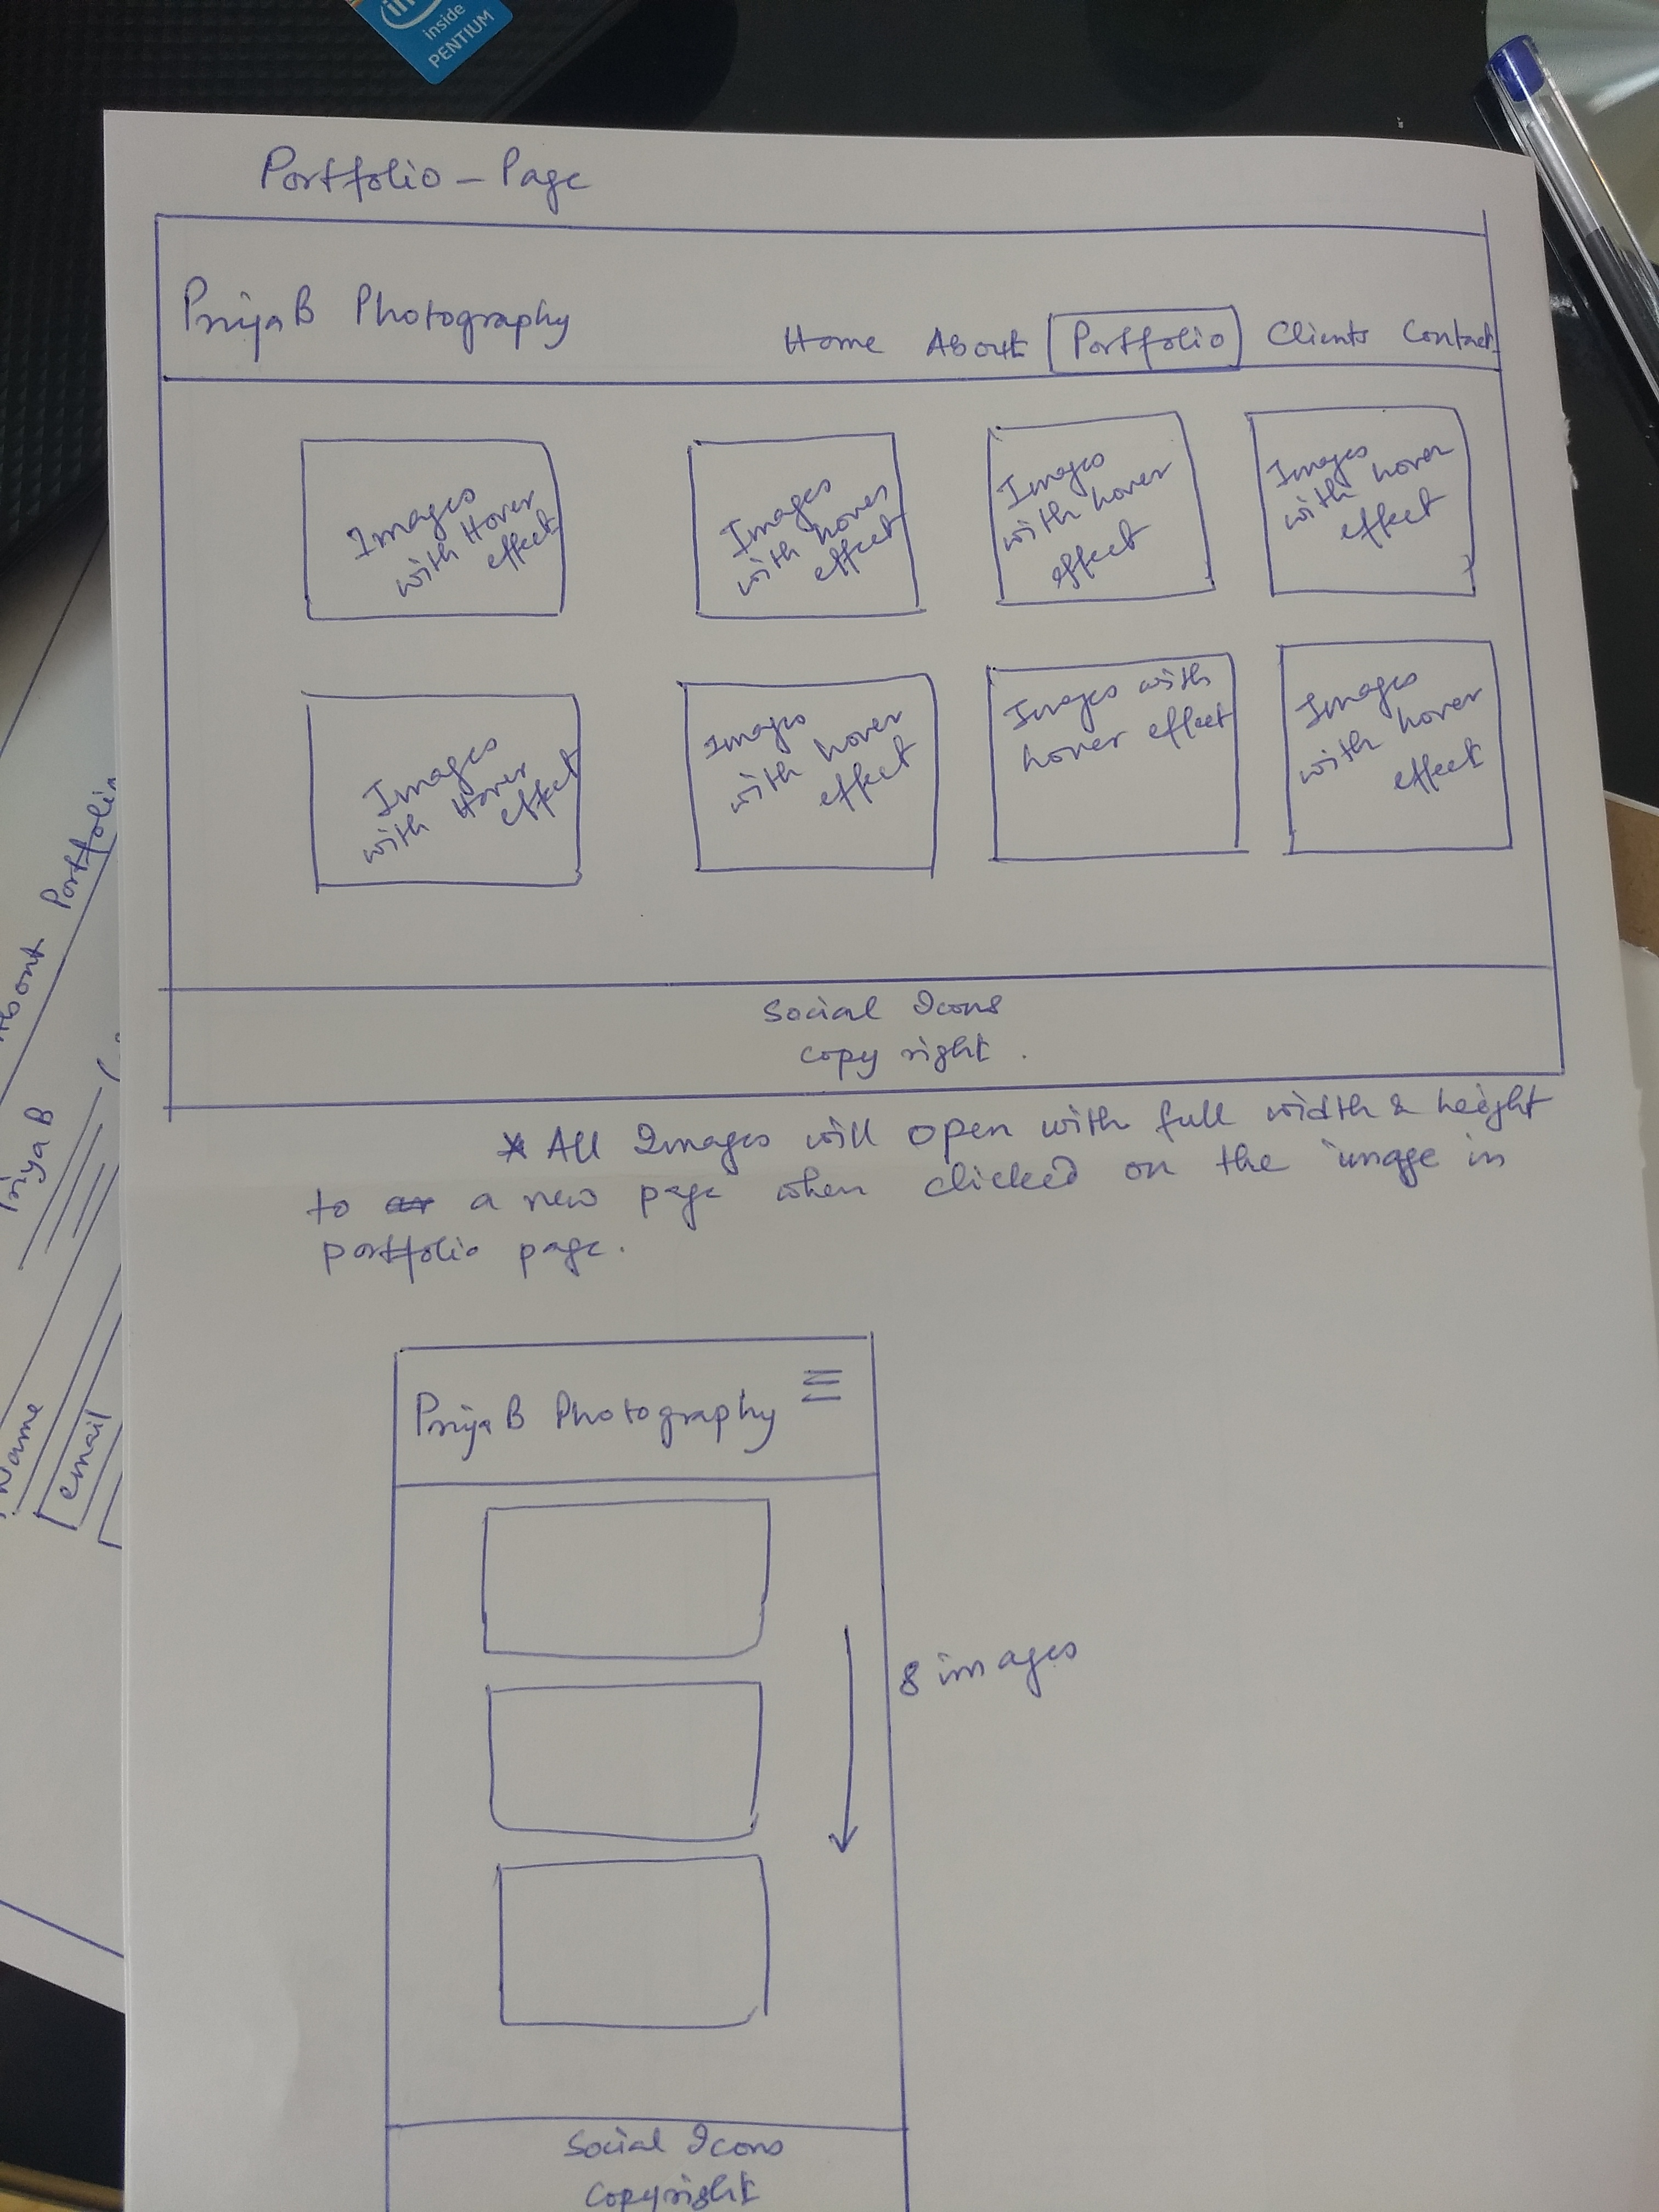 inside
PENTIUM
Portfolio - Page
PriyaB Photography
Home About Portfolio Clients Contact
Images
with Hover
effect
Images
with hover
effect
Images
with hover
effect
Images
with hover
effect
Images
with Hover
effect
Images
with hover
effect
Images with
hover effect
Images
with hover
effect
Social Icons
copy right .
* All Images will open with full width & height
to a new page when clicked on the image in
portfolio page.
PriyaB Photography
8 images
Social Icons
Copyright
About Portfolio
Priya B
Name
email